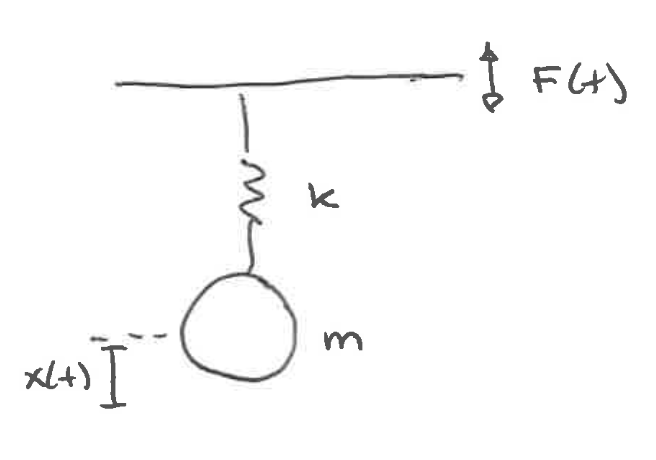 F(t)
k
m
x(t)